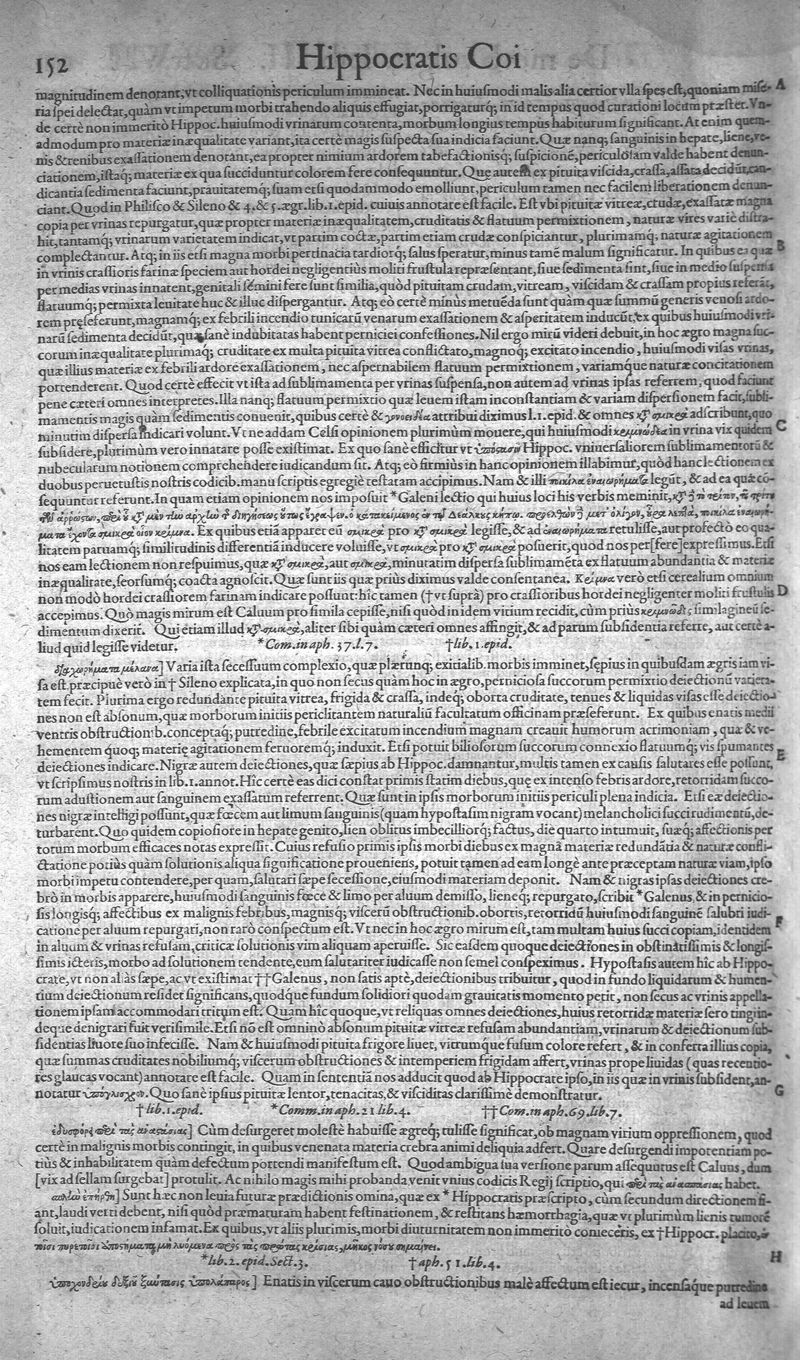 152 Hippocratis Coi
magnitudinem denotant, vt colliquationis periculum immineat. Nec in huiusmodi malis alia certior vlla spes est, quoniam mise- A
ria spei delectat, quàm vt impetum morbi trahendo aliquis effugiat, porrigaturq; in id tempus quod curationi locum præstet. Vn-
de certè non immeritò Hippoc. huiusmodi vrinarum contenta, morbum longius tempus habiturum significant. At enim quem-
admodum pro materiæ inæqualitate variant, ita certè magis suspecta sua indicia faciunt. Quæ nanq; sanguinis in hepate, liene, ve-
nis & renibus exassationem denotant, ea propter nimium ardorem tabefactionisq; suspicionē, periculosam valde habent denun-
ciationem, istaq; materiæ ex qua succiduntur colorem fere consequuntur. Que autem ex pituita viscida, crassa, assata decidūt, can-
dicantia sedimenta faciunt, prauitatemq; suam etsi quodammodo emolliunt, periculum tamen nec facilem liberationem denun-
ciant. Quod in Philisco & Sileno & 4. & 5. ægr. lib. 1. epid. cuiuis annotare est facile. Est vbi pituitæ vitreæ, crudæ, exassatæ magna
copia per vrinas repurgatur, quæ propter materiæ inæqualitatem, cruditatis & flatuum permixtionem, naturæ vires variè distra-
hit, tantamq; vrinarum varietatem indicat, vt partim coctæ, partim etiam crudæ conspiciantur, plurimamq. naturæ agitationem
complectantur. Atq; in iis etsi magna morbi pertinacia tardiorq; salus speratur, minus tamē malum significatur. In quibus ea quæ B
in vrinis crassioris farinæ speciem aut hordei negligentiùs moliti frustula repræsentant, siue sedimenta sint, siue in medio suspensa
per medias vrinas innatent, genitali semini fere sunt similia, quòd pituitam crudam, vitream, viscidam & crassam propius referāt,
flatuumq; permixta leuitate huc & illuc dispergantur. Atq; eò certè minùs metuēda sunt quàm quæ summū generis venosi ardo-
rem præseferunt, magnamq; ex febrili incendio tunicarū venarum exassationem & asperitatem inducūt, ex quibus huiusmodi vri-
narū sedimenta decidūt, quæ sanè indubitatas habent perniciei confessiones. Nil ergo mirū videri debuit, in hoc ægro magna suc-
corum inæqualitate plurimaq; cruditate ex multa pituita vitrea conflictato, magnoq; excitato incendio, huiusmodi visas vrinas,
quæ illius materiæ ex febrili ardore exassationem, nec aspernabilem flatuum permixtionem, variamque naturæ concitationem
portenderent. Quod certè effecit vt ista ad sublimamenta per vrinas suspensa, non autem ad vrinas ipsas referrem, quod faciunt
pene cæteri omnes interpretes. Illa nanq; flatuum permixtio quæ leuem istam inconstantiam & variam dispersionem facit, subli-
mamentis magis quàm sedimentis conuenit, quibus certè & γονοειδέα attribui diximus l. 1. epid. & omnes κατὰ σμικρὰ adscribunt, quo
minutim dispersa indicari volunt. Vt ne addam Celsi opinionem plurimùm mouere, qui huiusmodi κριμνώδεα in vrina vix quidem C
subsidere, plurimùm vero innatare posse existimat. Ex quo sanè efficitur vt ὑπόστασιν Hippoc. vniuersaliorem sublimamentorū &
nubecularum notionem comprehendere iudicandum sit. Atq; eò firmiùs in hanc opinionem illabimur, quòd hanc lectionem ex
duobus peruetustis nostris codicib. manuscriptis egregiè restatam accipimus. Nam & illi ποικίλα ἐναιωρήματα legūt, & ad ea quæ cō-
sequuntur referunt. In quam etiam opinionem nos imposuit *Galeni lectio qui huius loci his verbis meminit,
Ex quibus etiā apparet eū σμικρὰ pro κατὰ σμικρὰ legisse, & ad ἐναιωρήματα retulisse, aut profecto eo qua-
litatem paruamq; similitudinis differentiā inducere voluisse, vt σμικρὰ pro κατὰ σμικρὰ posuerit, quod nos per [fere] expressimus. Etsi
nos eam lectionem non respuimus, quæ κατὰ σμικρὰ, aut σμικρὰ, minutatim dispersa sublimamēta ex flatuum abundantia & materiæ
inæqualitate, seorsumq; coacta agnoscit. Quæ sunt iis quæ priùs diximus valde consentanea. Κρίμνα verò etsi cerealium omnium
non modò hordei crassiorem farinam indicare possunt: hîc tamen († vt suprà) pro crassioribus hordei negligenter moliti frustulis D
accepimus. Quò magis mirum est Caluum pro simila cepisse, nisi quòd in idem vitium recidit, cùm priùs κριμνώδες similagineū se-
dimentum dixerit. Qui etiam illud κατὰ σμικρὰ, aliter sibi quàm cæteri omnes affingit, & ad parum subsidentia referre, aut certè a-
liud quid legisse videtur. *Com. in aph. 37. l. 7. †lib. 1. epid.
διαχωρήματα μέλανα] Varia ista secessuum complexio, quæ plærunq; exitialib. morbis imminet, sępius in quibusdam ægris iam vi-
sa est. præcipuè verò in † Sileno explicata, in quo non secus quàm hoc in ægro, perniciosa succorum permixtio deiectionū varieta-
tem fecit. Plurima ergo redundante pituita vitrea, frigida & crassa, indeq; oborta cruditate, tenues & liquidas visas esse deiectio-
nes non est absonum, quæ morborum initiis periclitantem naturaliū facultatum officinam præseferunt. Ex quibus enatis medii
ventris obstruction b. conceptaq; putredine, febrile excitatum incendium magnam creauit humorum acrimoniam, quæ & ve-
hementem quoq; materię agitationem feruoremq; induxit. Etsi potuit biliosorum succorum connexio flatuumq; vis spumantes
deiectiones indicare. Nigræ autem deiectiones, quæ sæpius ab Hippoc. damnantur, multis tamen ex causis salutares esse possunt, E
vt scripsimus nostris in lib. 1. annot. Hîc certè eas dici constat primis statim diebus, quę ex intenso febris ardore, retorridam succo-
rum adustionem aut sanguinem exassatum referrent. Quæ sunt in ipsis morborum initiis periculi plena indicia. Etsi eæ deiectio-
nes nigræ intelligi possunt, quæ fœcem aut limum sanguinis (quam hypostasim nigram vocant) melancholici succi rudimentū, de-
turbarent. Quo quidem copiosiore in hepate genito, lien oblitus imbecilliorq; factus, die quarto intumuit, suæq; affectionis per
totum morbum efficaces notas expressit. Cuius refusio primis ipsis morbi diebus ex magna materiæ redundātia & naturæ confli-
ctatione potiùs quàm solutionis aliqua significatione proueniens, potuit tamen ad eam longè ante præceptam naturæ viam, ipso
morbi impetu contendere, per quam, salutari sæpe secessione, eiusmodi materiam deponit. Nam & nigras ipsas deiectiones cre-
brò in morbis apparere, huiusmodi sanguinis fœce & limo per aluum demisso, lieneq; repurgato, scribit *Galenus, & in pernicio-
sis longisq; affectibus ex malignis febribus, magnisq; viscerū obstructionib. obortis, retorridū huiusmodi sanguinē salubri iudi-
catione per aluum repurgari, non rarò conspectum est. Vt nec in hoc ægro mirum est, tam multam huius succi copiam, identidem F
in aluum & vrinas refusam, criticæ solutionis vim aliquam aperuisse. Sic easdem quoque deiectiones in obstinatissimis & longis-
simis icteris, morbo ad solutionem tendente, eum salutariter iudicasse non semel conspeximus. Hypostasis autem hîc ab Hippo-
crate, vt non aliàs sæpe, ac vt existimat ††Galenus, non satis aptè, deiectionibus tribuitur, quod in fundo liquidarum & humen-
tium deiectionum residet significans, quodque fundum solidiori quodam grauitatis momento petit, non secus ac vrinis appella-
tionem ipsam accommodari tritum est. Quam hîc quoque, vt reliquas omnes deiectiones, huius retorridæ materiæ sero tingi in-
deque denigrari fuit verisimile. Etsi nō est omninò absonum pituitæ vitreæ refusam abundantiam, vrinarum & deiectionum sub-
sidentias liuore suo infecisse. Nam & huiusmodi pituita frigore liuet, vitrumque fusum colore refert, & in conferta illius copia,
quæ summas cruditates nobiliumq; viscerum obstructiones & intemperiem frigidam affert, vrinas prope liuidas (quas recentio-
res glaucas vocant) annotare est facile. Quam in sententiā nos adducit quod ab Hippocrate ipso, in iis quæ in vrinis subsident, an-
notatur ὑπόγλισχρον. Quo sanè ipsius pituitæ lentor, tenacitas, & visciditas clarissimè demonstratur. G
†lib. 1. epid. *Comm. in aph. 21 lib. 4. ††Com. in aph. 69. lib. 7.
ἐδυσφόρει περὶ τὰς ἀναστάσιας] Cùm desurgeret molestè habuisse ægreq; tulisse significat, ob magnam virium oppressionem, quod
certè in malignis morbis contingit, in quibus venenata materia crebra animi deliquia adfert. Quare desurgendi impotentiam po-
tiùs & inhabilitatem quàm defectum portendi manifestum est. Quod ambigua sua versione parum assequutus est Caluus, dum
[vix ad sellam surgebat] protulit. Ac nihilo magis mihi probanda venit vnius codicis Regij scriptio, qui περὶ τὰς ἀναπαύσιας habet.
Sunt hæc non leuia futuræ prædictionis omina, quæ ex * Hippocratis præscripto, cùm secundum directionem fi-
ant, laudi verti debent, nisi quòd præmaturam habent festinationem, & restitans hæmorrhagia, quæ vt plurimùm lienis tumorē
soluit, iudicationem infamat. Ex quibus, vt aliis plurimis, morbi diuturnitatem non immeritò conieceris, ex †Hippocr. placito,
*lib. 2. epid. Sect. 3. †aph. 51. lib. 4. H
ὑποχονδρίου δεξιοῦ ξύντασις ὑπολάπαρος] Enatis in viscerum cauo obstructionibus malè affectum est iecur, incensaque putredine
ad leuem